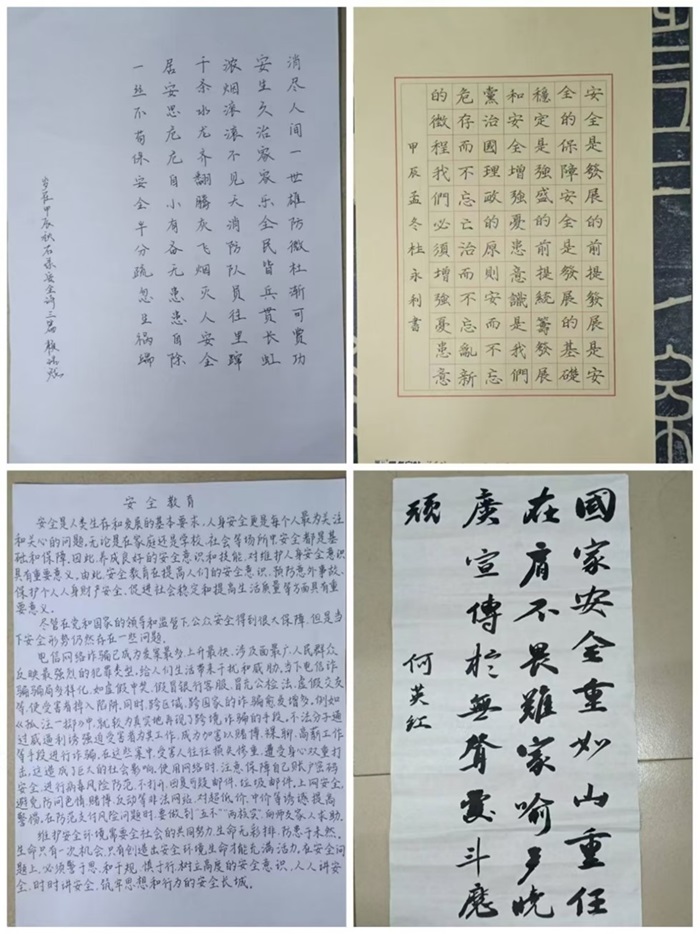 消尽人间一世雄防微杜渐可贾功
安生久治家家乐全民皆兵贯长虹
浓烟滚滚不见天消防队员往里蹿
千条水龙齐翻腾灰飞烟灭人安全
居安思危危自小有备无患患自除
一丝不苟保安全半分疏忽生祸端
岁在甲辰秋石保安全诗三首
安全是發展的前提發展是安
全的保障安全是發展的基礎
穩定是強盛的前提統籌發展
和安全增強憂患意識是我們
黨治國理政的原則安而不忘
危存而不忘亡治而不忘亂新
的微程我們必須增強憂患意
甲辰孟冬杜永利書
安全教育
安全是人类生存和发展的基本要求,人身安全更是每个人最为关注
和关心的问题,无论是在家庭还是学校、社会等场所里安全都是基
础和保障。因此,养成良好的安全意识和技能,对维护人身安全意识
具有重要意义。由此,安全教育在提高人们的安全意识、预防意外事故、
保护个人人身财产安全,促进社会稳定和提高生活质量等方面具有重
要意义。
尽管在党和国家的领导和监管下,公众安全得到很大保障,但是当
下安全形势仍然存在一些问题。
电信网络诈骗已成为发案最多,上升最快,涉及面最广,人民群众
反映最强烈的犯罪类型,给人们生活带来干扰和威胁,当下电信诈
骗骗局多样化,如虚假中奖、假冒银行客服、冒充公检法、虚假交友
等,使受害者掉入陷阱,同时,跨区域、跨国家的诈骗愈发增多,例如
《孤注一掷》中,就较为真实地再说了跨境诈骗的手段,不法分子通
过威逼利诱强迫受害者为其工作,成为加害以赌博、裸聊、高薪工作
等手段进行诈骗,在这些案中,受害人往往损失惨重,遭受身心双重打
击,这造成了巨大的社会影响,使用网络时,注意保障自己账户密码
安全,进行病毒风险防范,不打开、回复可疑邮件、垃圾邮件,上网安全,
避免访问色情、赌博、反动等非法网站,对超低价、中价等诱惑提高
警惕,在防范支付风险问题时,要做到"五不""两核实",向静友家人求助。
维护安全环境需要全社会的共同努力,生命无彩排,防患于未然。
生命只有一次机会,只有创造出安全环境生命才能充满活力,在安全问
题上,必须警于思,和于规,慎于行,树立高度的安全意识,人人讲安
全,时时讲安全,筑牢思想和行为的安全长城。
國家安全重如山重任
在肩不畏難家喻户曉
廣宣傳於無聲處斗應
頑
何英红